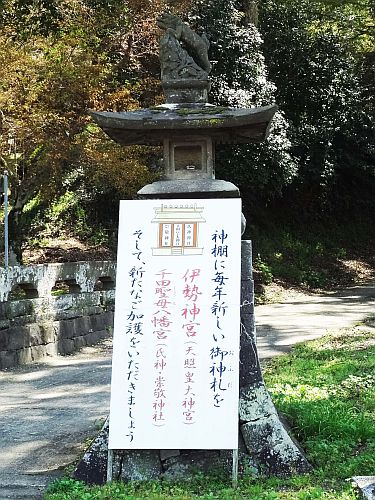 神棚に毎年新しい御神札を
おふだ
伊勢神宮(天照皇大神宮)
千田聖母八幡宮(氏神・崇敬神社)
そして、新たなご加護をいただきましょう